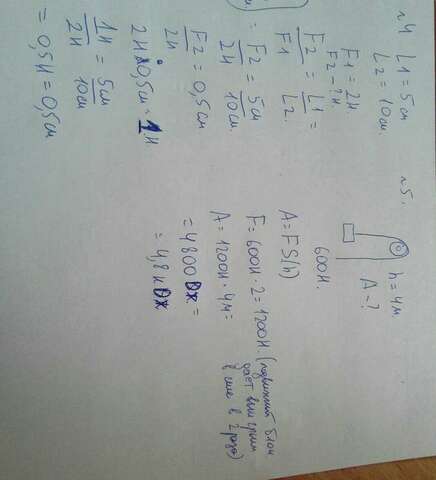 N4
L1 = 5 см
L2 = 10 см.
F1 = 2н
F2 - ? н.
F2/F1 = L1/L2 =
= F2/2н = 5см/10см.
F2/2н = 0,5 см
2н · 0,5 см = 1 н.
1н/2н = 5см/10см
= 0,5н = 0,5 см
N5.
h = 4 м.
A - ?
600н.
A = FS(h)
F = 600н · 2 = 1200н. (подвижный блок
даёт выигрыш
в силе в 2 раза)
A = 1200н · 4м =
= 4800 Дж =
= 4,8 кДж